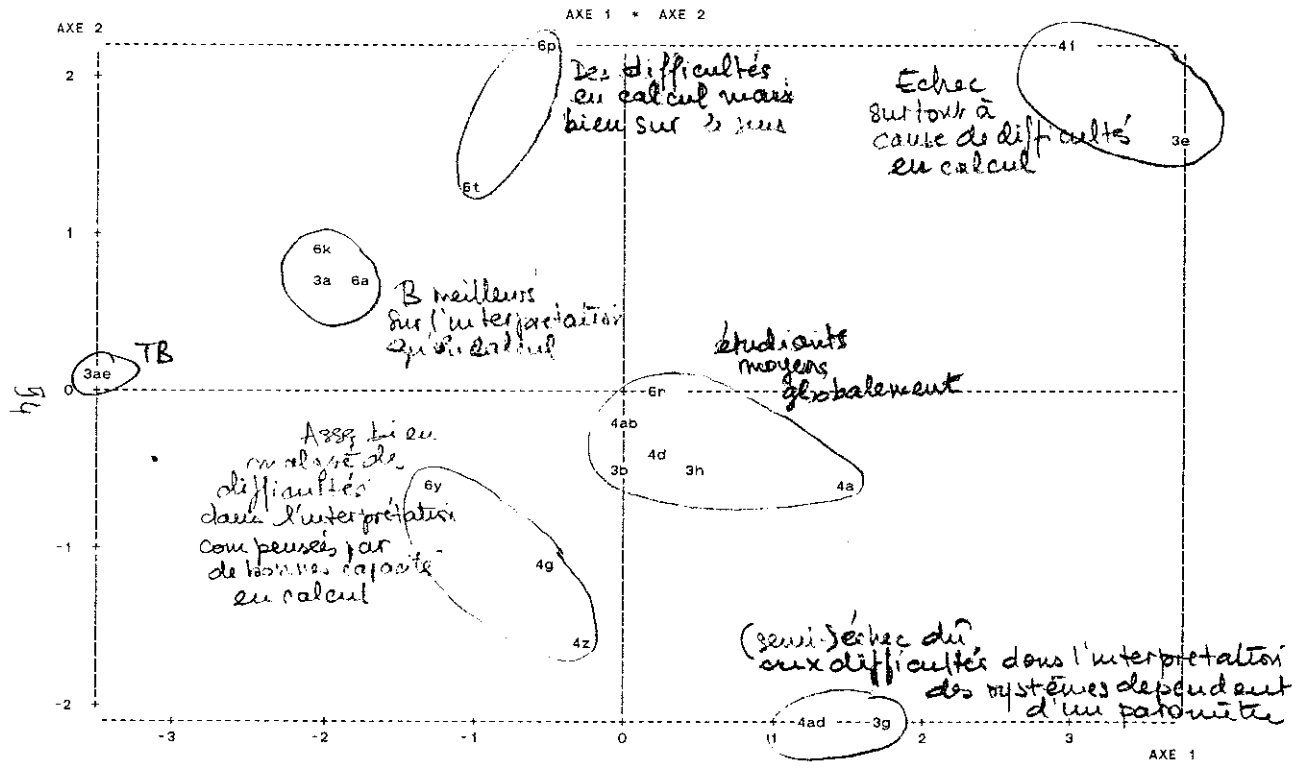 AXE 1 * AXE 2
AXE 2
6p
4i
2
Des difficultés
en calcul mais
bien sur le sens
Echec
surtout à
cause de difficultés
en calcul
3e
6t
1
6k
3a 6a
B meilleurs
sur l'interprétation
qu'en calcul
TB
3ae
0
54
étudiants
moyens
globalement
6r
4ab
4d
3b 3h
4a
Assez bien
malgré des
difficultés
dans l'interprétation
compensés par
de bonnes capacité
en calcul
6y
-1
4g
4z
(semi-)échec dû
aux difficultés dans l'interprétation
des systèmes dependent
d'un paramètre
-2
4ad 3g
-3 -2 -1 0 1 2 3
AXE 1